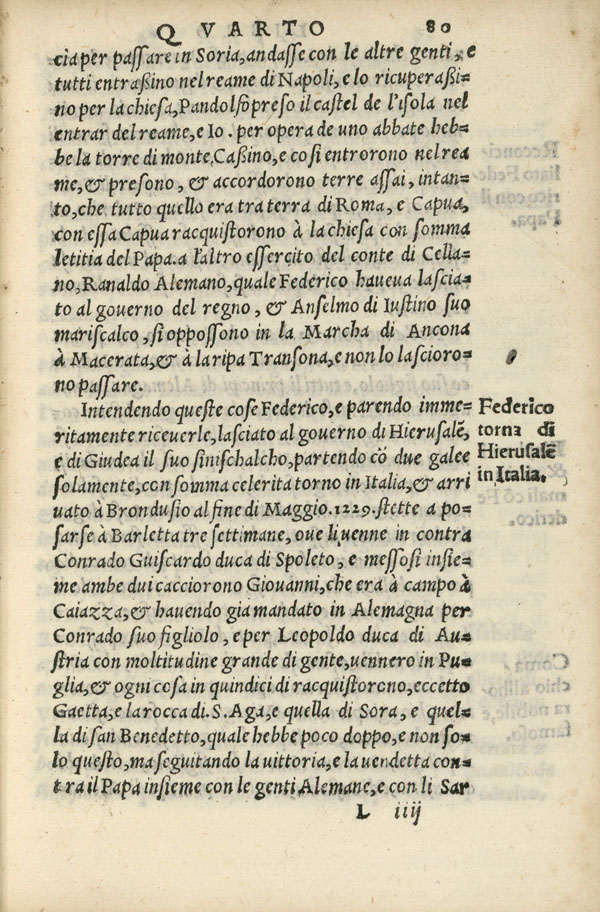 QVARTO 80
cia per passare in Soria, andasse con le altre genti, e
tutti entraßino nel reame di Napoli, e lo ricuperaßi=
no per la chiesa, Pandolfo preso il castel de l'isola nel
entrar del reame, e Io. per opera de uno abbate heb=
be la torre di monte Caßino, e cosi entrorono nel rea
me, & presono, & accordorono terre assai, intan=
to, che tutto quello era tra terra di Roma, e Capua,
con essa Capua racquistorono à la chiesa con somma
letitia del Papa. a l'altro essercito del conte di Cella=
no, Ranaldo Alemano, quale Federico haueua lascia=
to al gouerno del regno, & Anselmo di Iustino suo
mariscalco, si opposono in la Marcha di Ancona
à Macerata, & à la ripa Transona, e non lo lascioro=
no passare.
Intendendo queste cose Federico, e parendo imme=
ritamente riceuerle, lasciato al gouerno di Hierusalē,
e di Giudea il suo sinischalcho, partendo cō due galee
solamente, con somma celerita torno in Italia, & arri
uato à Brondusio al fine di Maggio. 1229. stette a po=
sarse à Barletta tre settimane, oue li uenne in contra
Conrado Guiscardo duca di Spoleto, e messosi insie=
me ambe dui cacciorono Giouanni, che era à campo à
Caiazza, & hauendo gia mandato in Alemagna per
Conrado suo figliolo, e per Leopoldo duca di Au=
stria con moltitudine grande di gente, uennero in Pu=
glia, & ogni cosa in quindici di racquistorono, eccetto
Gaetta, e la rocca di. S. Aga, e quella di Sora, e quel=
la di san Benedetto, quale hebbe poco doppo, e non so=
lo questo, ma seguitando la uittoria, e la uendetta con=
tra il Papa insieme con le genti Alemane, e con li Sar
L iiij
Federico
torna di
Hierusalē
in Italia.